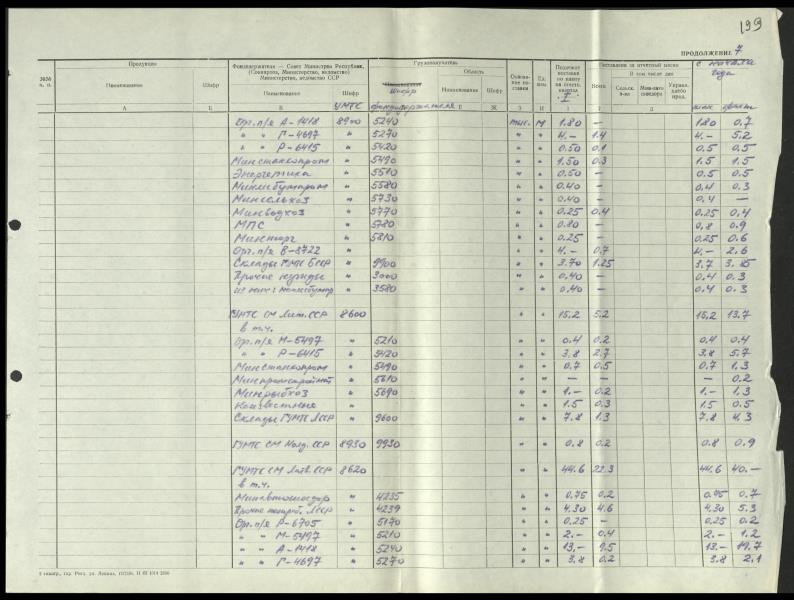 199
ПРОДОЛЖЕНИЕ 7
Продукция
Фондодержатели — Совет Министров Республики,
(Совнархоз, Министерство, ведомство)
Министерство, ведомство ССР
Грузополучатель
Область
Поставлено за отчетный месяц
В том числе для
с начала года
Наименование Шифр Наименование Шифр Шифр Наименование Шифр Ед. изм. Всего план факт
А Б В Е Ж З И 1 2 3
УМТС фондодержателя
Орг. п/я А-1418 8900 5240 тыс. м 1.80 — 1.80 0.7
" " Г-4697 " 5270 " " 4.— 1.4 4.— 5.2
" " Р-6415 " 5420 " " 0.50 0.1 0.5 0.5
Минстанкопром " 5490 " " 1.50 0.3 1.5 1.5
Энергетика " 5510 " " 0.50 — 0.5 0.5
Минлесбумпром " 5580 " " 0.40 — 0.4 0.3
Минсельхоз " 5730 " " 0.40 — 0.4 —
Минводхоз " 5770 " " 0.25 0.4 0.25 0.4
МПС " 5780 " " 0.80 — 0.8 0.9
Минторг " 5810 " " 0.25 — 0.25 0.6
Орг. п/я В-8722 " " " 4.— 0.7 4.— 2.6
Склады ГУМТС БССР " 9900 " " 3.70 1.25 3.7 3.85
Прочие нужды " 3000 " " 0.40 — 0.4 0.3
из них: " 3580 " " 0.40 — 0.4 0.3
ГУМТС СМ Лит. ССР 8600 " " 15,2 5.2 15,2 13.7
в т.ч.
Орг. п/я М-5497 " 5210 " " 0.4 0.2 0.4 0.4
" " Р-6415 " 5420 " " 3.8 2.7 3.8 5.7
Минстанкопром " 5490 " " 0.7 0.5 0.7 1.3
Минпромстроймат " 5610 " " — — — 0.2
Минрыбхоз " 5690 " " 1.— 0.2 1.— 1.3
Неизвестные " " " 1.5 0.3 1.5 0.5
Склады ГУМТС ЛССР " 9600 " " 7.8 1.3 7.8 4.3
ГУМТС СМ Молд. ССР 8930 9930 " " 0.8 0.2 0.8 0.9
ГУМТС СМ Латв. ССР 8620 " " 44.6 22.3 44.6 40.—
в т.ч.
Минавтошосдор " 4235 " " 0.75 0.2 0.75 0.7
Прочие ЛССР " 4239 " " 4.30 4.6 4.30 5.3
Орг. п/я Р-6705 " 5170 " " 0.25 — 0.25 0.2
" " М-5497 " 5210 " " 2.— 0.4 2.— 1.2
" " А-1418 " 5240 " " 13,— 9.5 13.— 19.7
" " Г-4697 " 5270 " " 3.8 0.2 3.8 2.1